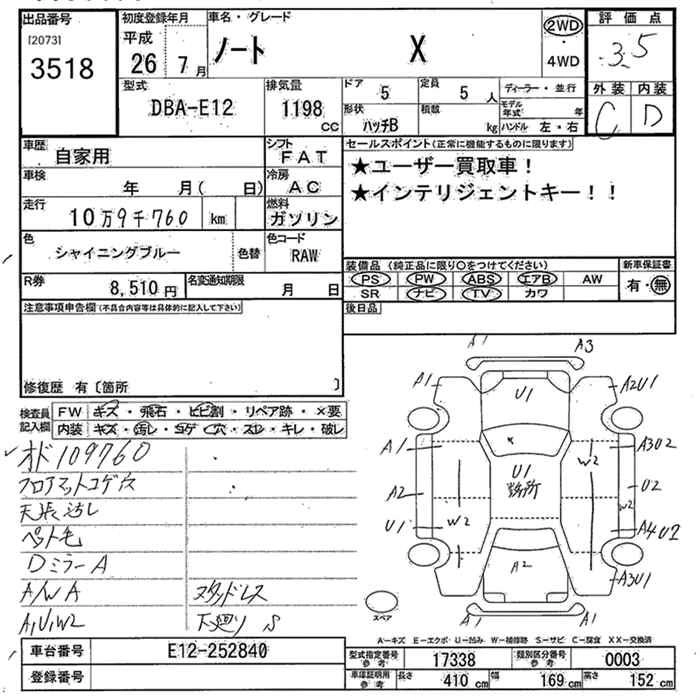 出品番号 初度登録年月 車名・グレード 2WD 評価点
[2073] 平成
3518 26 7月 ノート X 4WD 3.5
型式 排気量 ドア 定員 ディーラー・並行 外装 内装
DBA-E12 1198 CC 5 5人 モデル年式 年
形状 ハッチB 積載 kg ハンドル 左・右 C D
車歴 自家用 シフト FAT セールスポイント(正常に機能するものに限ります)
★ユーザー買取車!
車検 年 月( 日) 冷房 AC ★インテリジェントキー!!
走行 10万9千760 km 燃料 ガソリン
色 シャイニングブルー 色替 色コード RAW
装備品(純正品に限り○をつけてください) 新車保証書
R券 8,510円 名変通知期限 月 日 PS PW ABS エアB AW 有・無
SR ナビ TV カワ
注意事項申告欄(不具合内容等は具体的に記入して下さい) 後日品
修復歴 有〔箇所 〕
検査員記入欄 FW キズ・飛石・ヒビ割・リペア跡・×要
内装 キズ・汚レ・コゲ・穴・スレ・キレ・破レ
オド109760
フロアマットコゲ穴
天張汚レ
ペット毛
DミラーA
A/W A スタッドレス
A1U1W2 下廻り S
A1 A3
A1 U1 A2U1
A1 W2 A3U2
A2 U1 数ヶ所 U2
W2
U1 W2 A4U2
A2 A3U1
A1 A1
スペア
A-キズ E-エクボ U-凹み W-補修跡 S-サビ C-腐食 XX-交換済
車台番号 E12-252840 型式指定番号 参考 17338 類別区分番号 参考 0003
登録番号 車庫証明用 参考 長さ 410 cm 幅 169 cm 高さ 152 cm